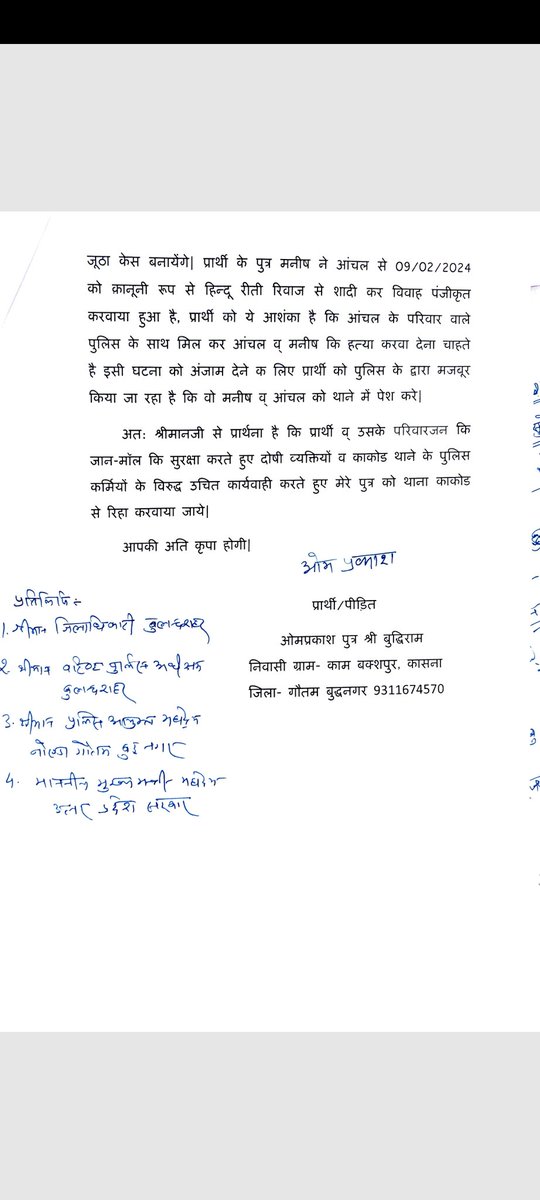 जूठा केस बनायेंगे| प्रार्थी के पुत्र मनीष ने आंचल से 09/02/2024
को क़ानूनी रूप से हिन्दू रीती रिवाज से शादी कर विवाह पंजीकृत
करवाया हुआ है, प्रार्थी को ये आशंका है कि आंचल के परिवार वाले
पुलिस के साथ मिल कर आंचल व् मनीष कि हत्या करवा देना चाहते
है इसी घटना को अंजाम देने क लिए प्रार्थी को पुलिस के द्वारा मजबूर
किया जा रहा है कि वो मनीष व् आंचल को थाने में पेश करे|
अत: श्रीमानजी से प्रार्थना है कि प्रार्थी व् उसके परिवारजन कि
जान-मॉल कि सुरक्षा करते हुए दोषी व्यक्तियों व काकोड थाने के पुलिस
कर्मियों के विरुद्ध उचित कार्यवाही करते हुए मेरे पुत्र को थाना काकोड
से रिहा करवाया जाये|
आपकी अति कृपा होगी|
ओम प्रकाश
प्रार्थी/पीडित
ओमप्रकाश पुत्र श्री बुद्धिराम
निवासी ग्राम- काम बक्शपुर, कासना
जिला- गौतम बुद्धनगर 9311674570
प्रतिलिपि :-
1. श्रीमान जिलाधिकारी बुलन्दशहर
2. श्रीमान वरिष्ठ पुलिस अधीक्षक
बुलन्दशहर
3. श्रीमान पुलिस आयुक्त महोदय
नोएडा गौतम बुद्ध नगर
4. माननीय मुख्यमन्त्री महोदय
उत्तर प्रदेश सरकार